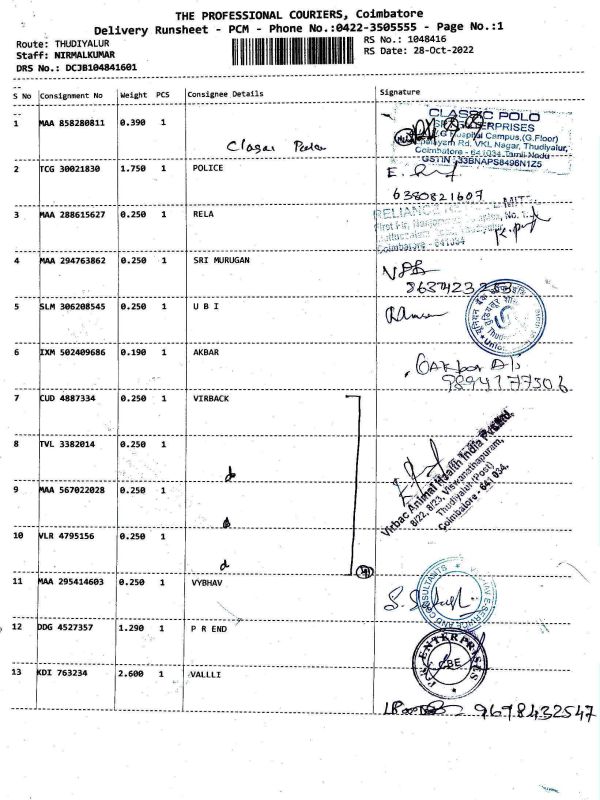 THE PROFESSIONAL COURIERS, Coimbatore
Delivery Runsheet - PCM - Phone No.:0422-3505555 - Page No.:1
Route: THUDIYALUR
RS No.: 1048416
Staff: NIRMALKUMAR
RS Date: 28-Oct-2022
DRS No.: DCJB104841601
S No Consignment No Weight PCS Consignee Details Signature
1 MAA 858280811 0.390 1
CLASSIC POLO
Hospital Campus,(G.Floor)
Rd, VKL Nagar, Thudiyalur,
Coimbatore - 641 034. Tamil Nadu
GSTIN : 33BNAPS8496N1Z5
2 TCG 30021830 1.750 1 POLICE
6380821607
3 MAA 288615627 0.250 1 RELA
RELIANCE
Coimbatore - 641034
4 MAA 294763862 0.250 1 SRI MURUGAN
5 SLM 306208545 0.250 1 U B I
6 IXM 502409686 0.190 1 AKBAR
9894177306
7 CUD 4887334 0.250 1 VIRBACK
8 TVL 3382014 0.250 1
9 MAA 567022028 0.250 1
10 VLR 4795156 0.250 1
Virbac Animal Health India Pvt.Ltd.
8/22, 8/23, Viswanathapuram,
Thudiyalur (Post)
Coimbatore - 641 034.
11 MAA 295414603 0.250 1 VYBHAV
AND CONSULTANTS
12 DDG 4527357 1.290 1 P R END
ENTERPRISES
CBE
13 KDI 763234 2.600 1 VALLLI
9678432547